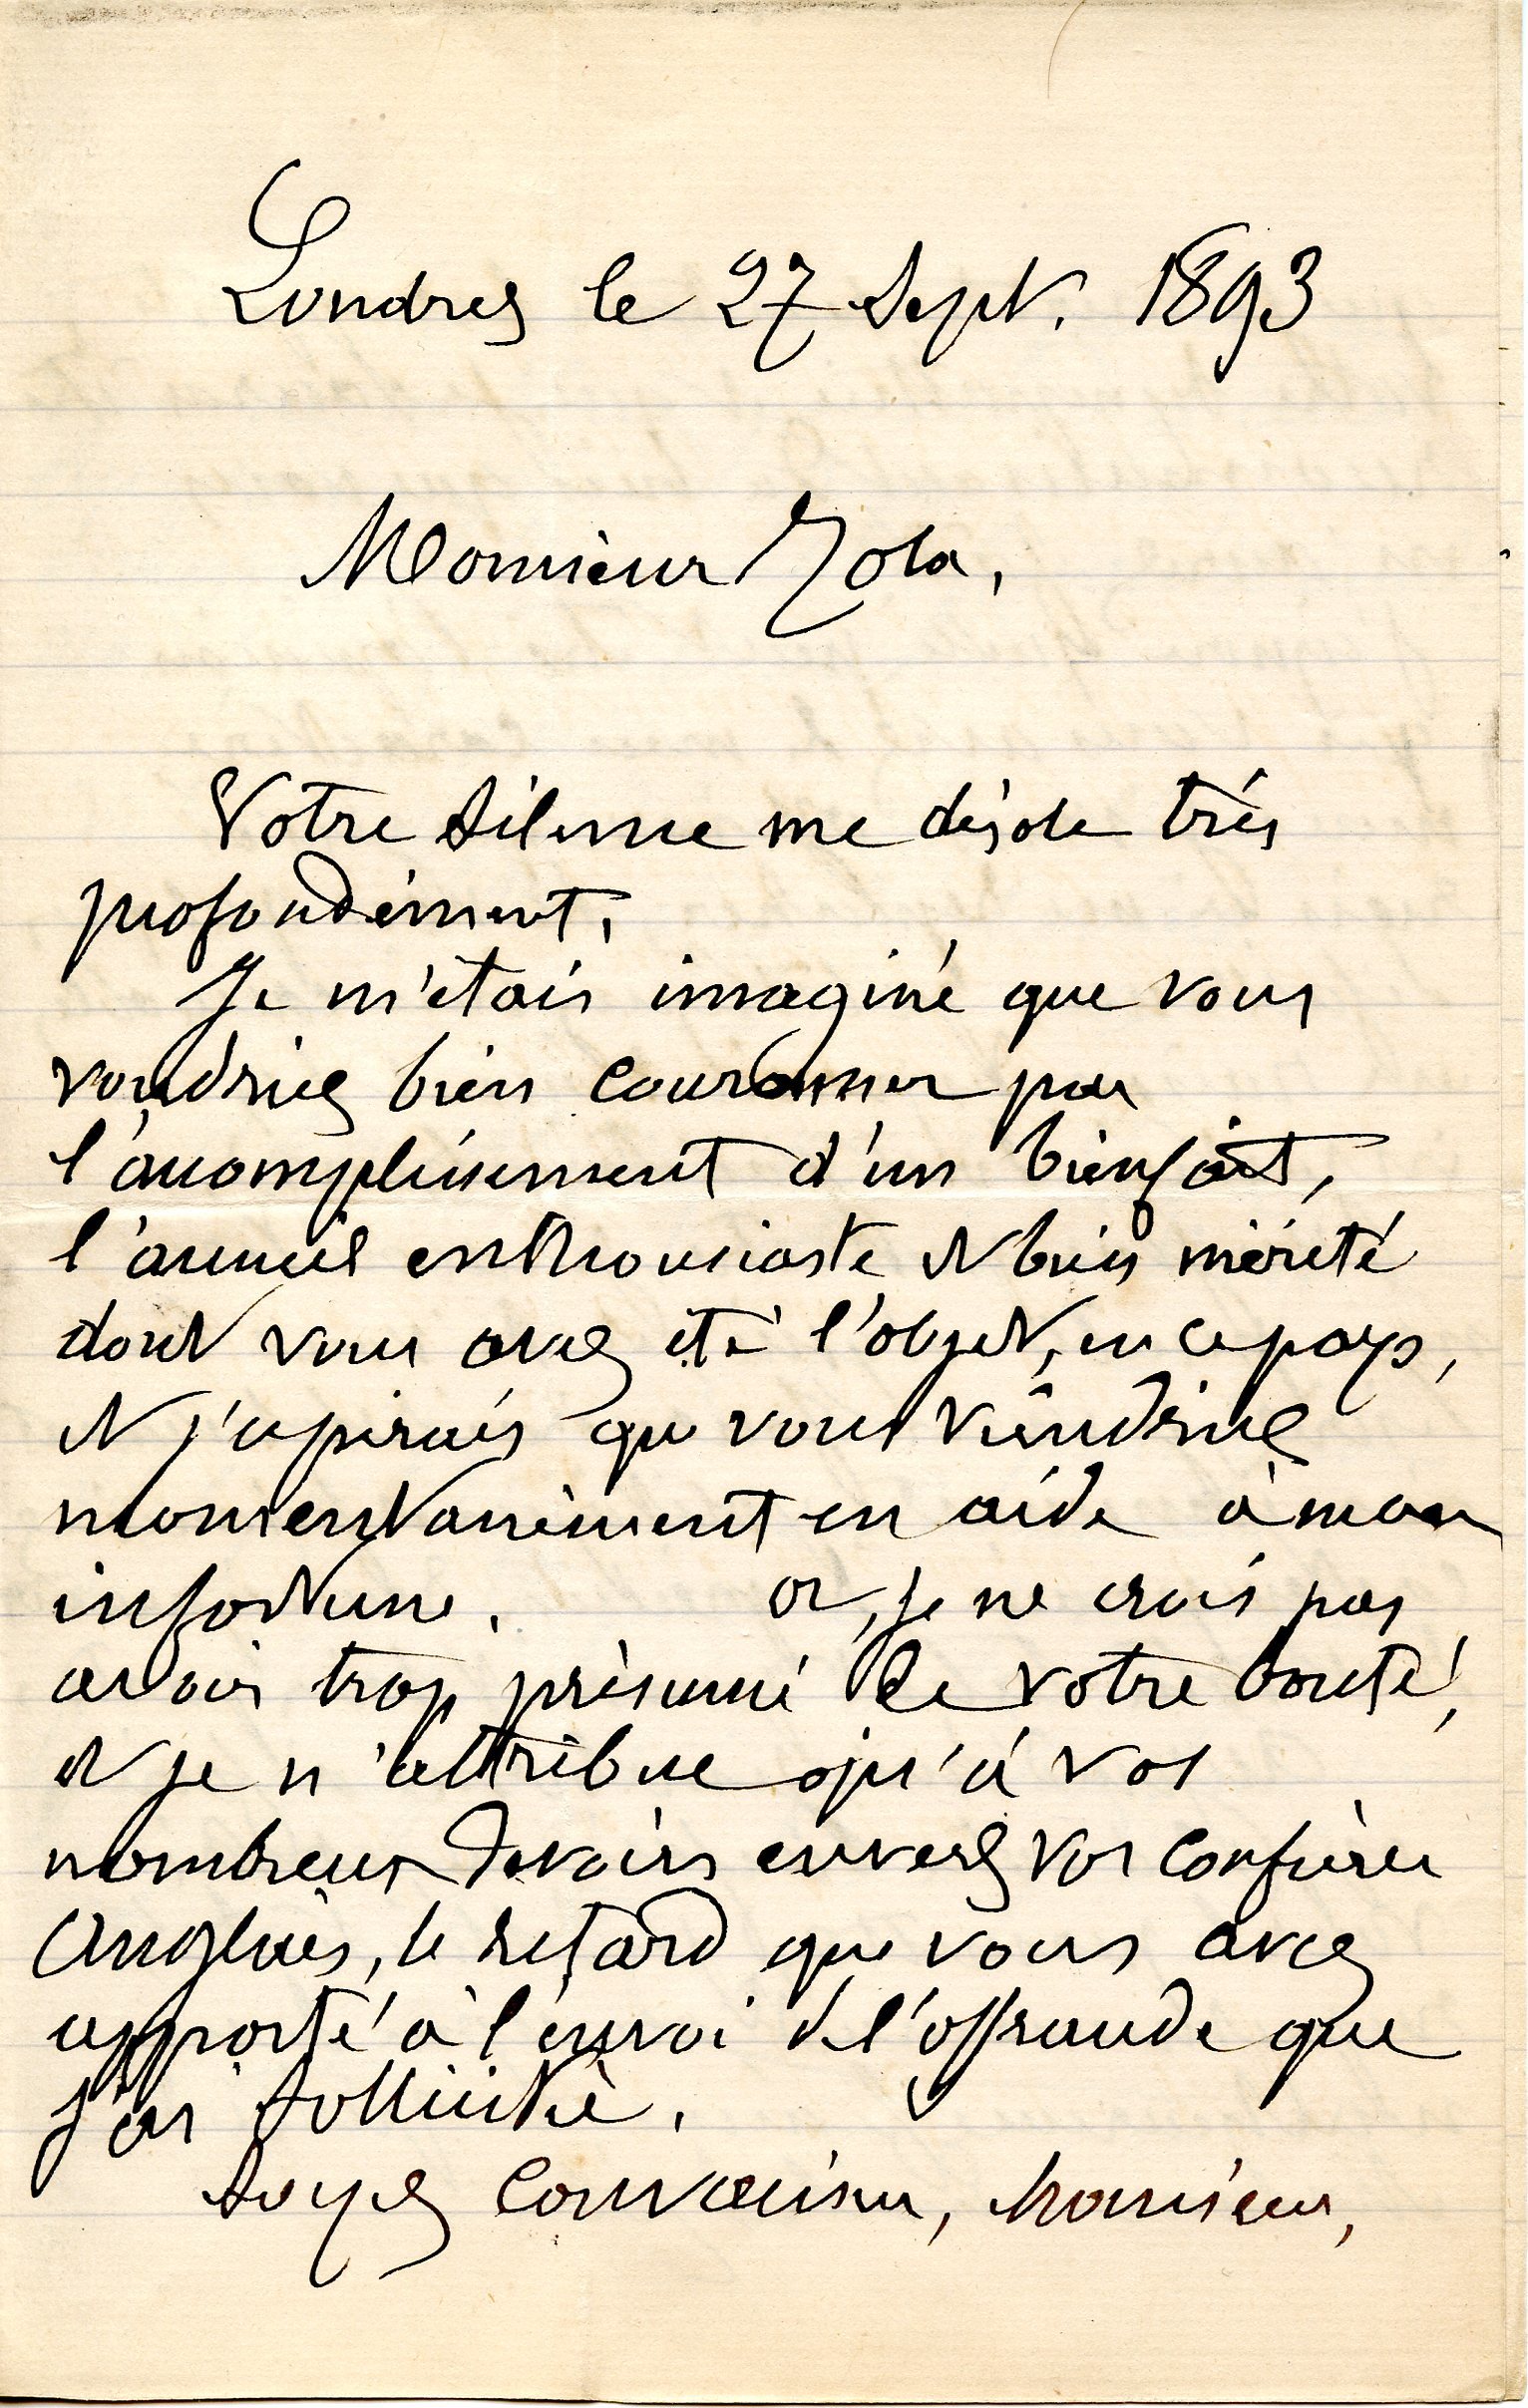 Londres le 27 Sept. 1893
Monsieur Zola,
Votre silence me désole très
profondément.
Je m'étais imaginé que vous
voudriez bien couronner par
l'accomplissement d'un bienfait,
l'accueil enthousiaste et bien mérité
dont vous avez été l'objet, en ce pays,
et j'espérais que vous viendriez
momentanément en aide à mon
infortune. Or, je ne crois pas
avoir trop présumé de votre bonté,
et je n'attribue qu'à vos
nombreux devoirs envers vos confrères
Anglais, le retard que vous avez
apporté à l'envoi de l'offrande que
j'ai sollicitée.
Soyez convaincu, Monsieur,